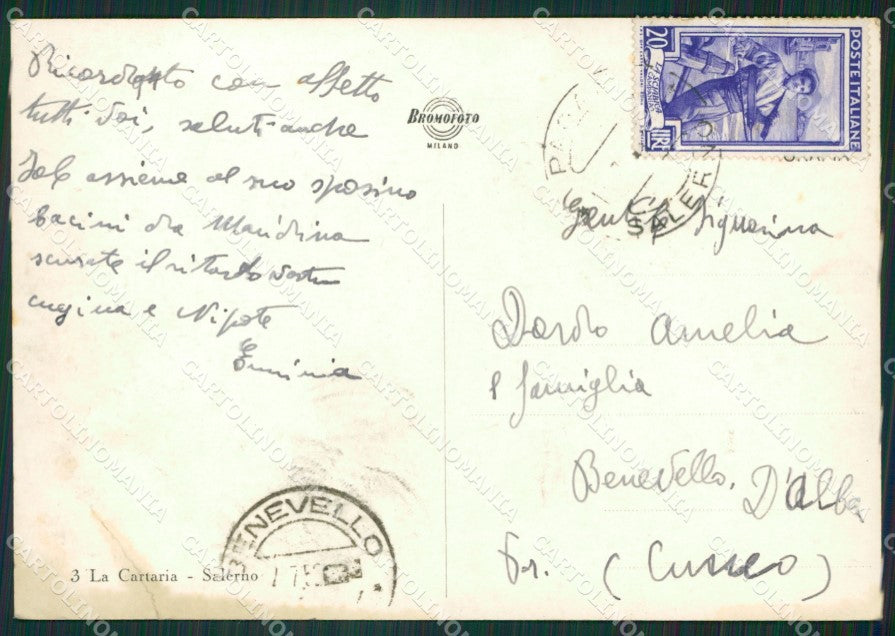 Ricordando con affetto
tutti voi, saluti anche
assieme al suo sposino
bacini da Mandina
scusate il ritardo vostra
cugina e Nipote
BROMOFOTO
MILANO
3 La Cartaria - Salerno
BENEVELLO
POSTE ITALIANE
20
LIRE
SALERNO
Gentil Signorina
Dardo Amelia
e famiglia
Benevello. D'Alba
Pr. (Cuneo)
CARTOLINOMANIA